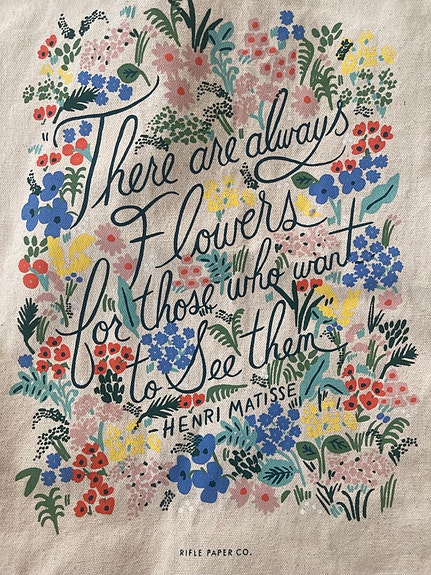 "There are always
Flowers
for those who want
to See them"
-HENRI MATISSE
RIFLE PAPER CO.